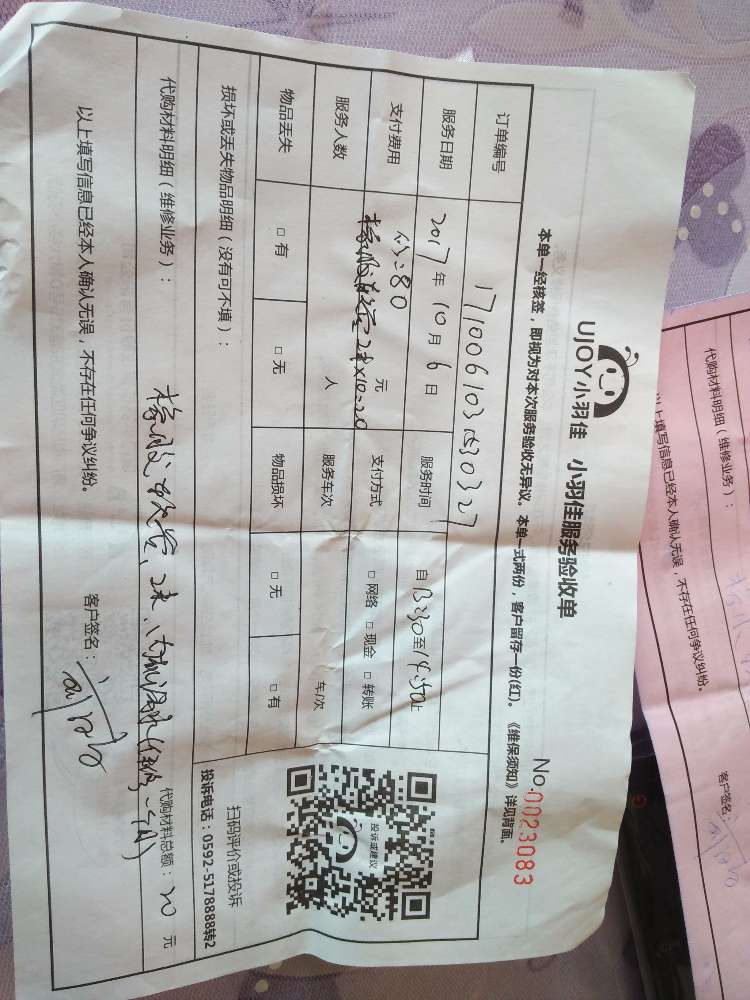 UJOY小羽佳 小羽佳服务验收单
No.0023083
本单一经核签，即视为对本次服务验收无异议。本单一式两份，客户留存一份(红)。《维保须知》详见背面。
订单编号
服务日期 2017年10月6日 服务时间 自13:30至14:30止
支付费用 80 元 支付方式 □网络 □现金 □转账
服务人数 人 服务车次 车/次
物品丢失 □有 □无 物品损坏 □无 □有
投诉或建议
扫码评价或投诉
投诉电话：0592-5178888转2
损坏或丢失物品明细（没有可不填）：
代购材料明细（维修业务）： 代购材料总额：20元
以上填写信息已经本人确认无误，不存在任何争议纠纷。 客户签名：
代购材料明细（维修业务）：
以上填写信息已经本人确认无误，不存在任何争议纠纷。 客户签名：